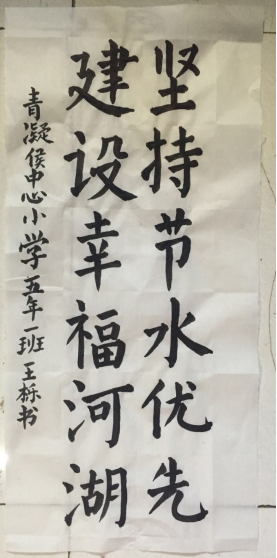 坚持节水优先
建设幸福河湖
青凝侯中心小学五年一班王栎书